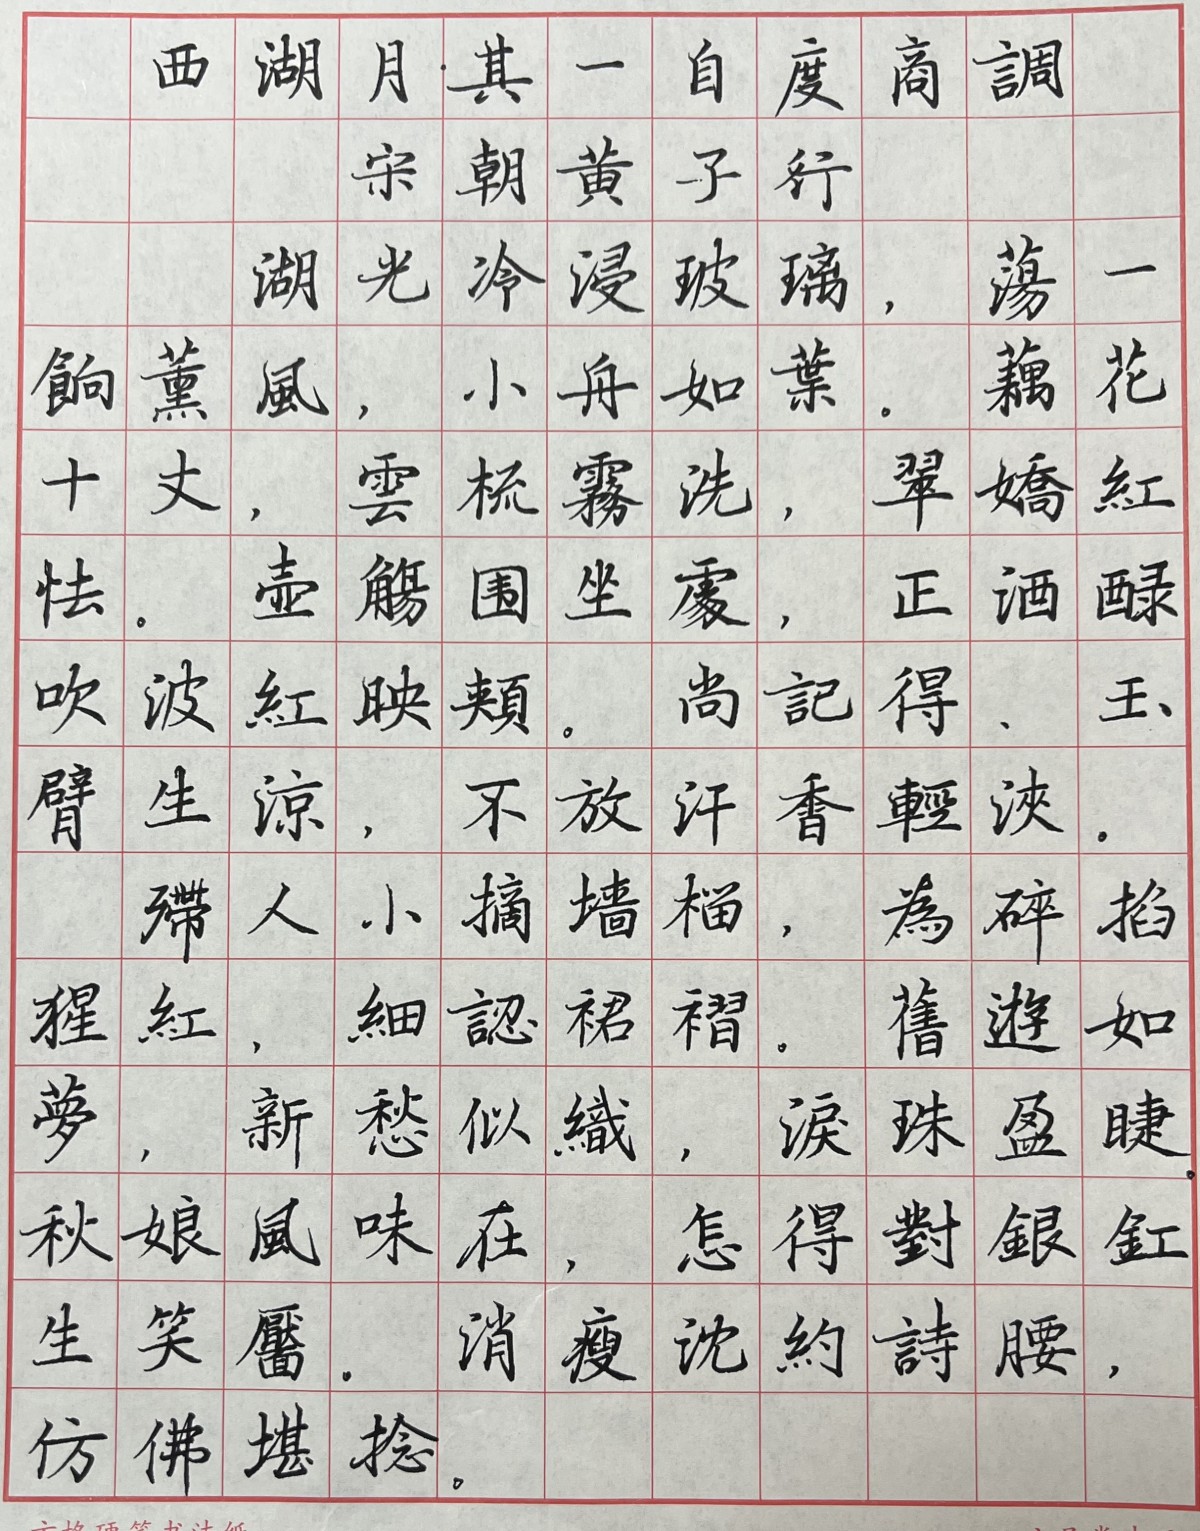 西湖月·其一自度商調
宋朝黄子行
湖光冷浸玻璃，蕩一
餉薰風，小舟如葉。藕花
十丈，雲梳霧洗，翠嬌紅
怯。壺觴围坐處，正酒醁
吹波紅映頰。尚記得、玉
臂生涼，不放汗香輕浹。
殢人小摘墙榴，為碎掐
猩紅，細認裙褶。舊遊如
夢，新愁似織，淚珠盈睫。
秋娘風味在，怎得對銀釭
生笑靨。消瘦沈約詩腰，
仿佛堪捻。